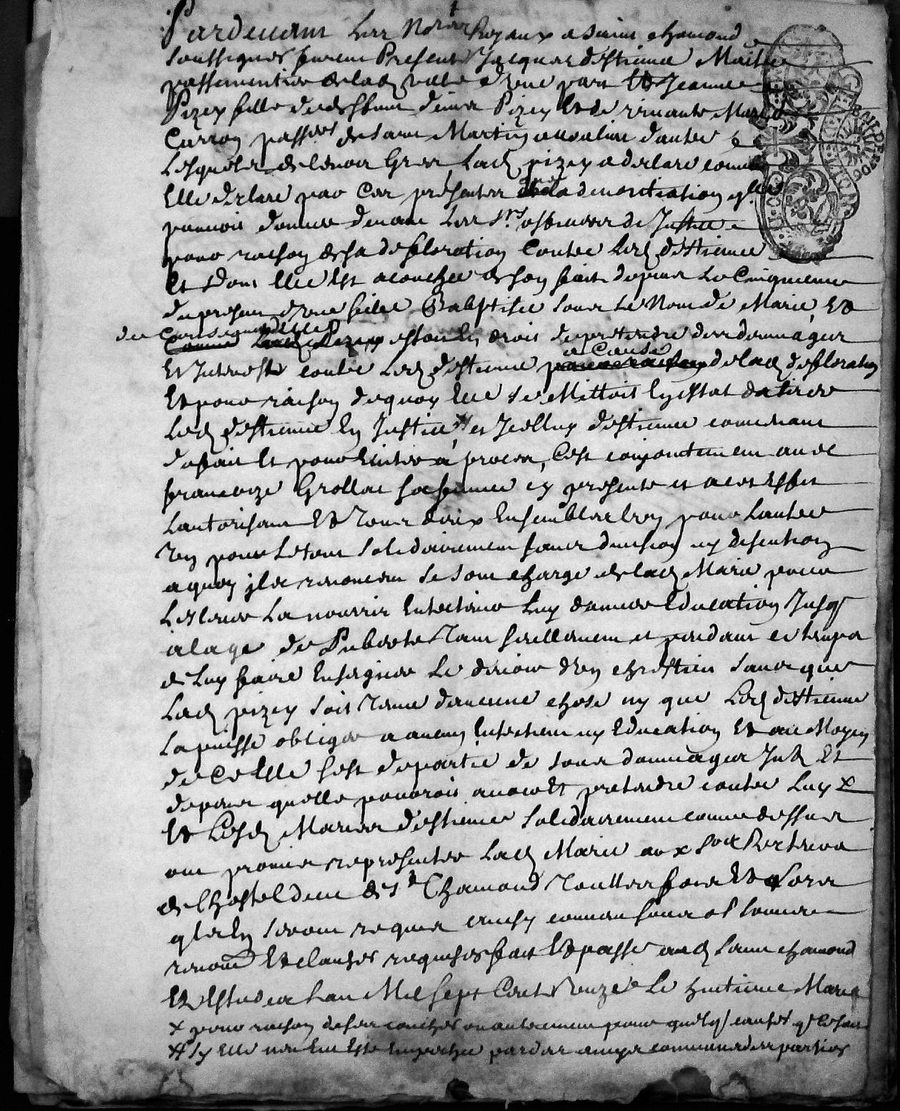 Pardevant Les Notres Royaux a Saint chamond
soussignes furent Presents Jacques destienne Maitre
passementier de lad ville d'une part Et Jeanne
Pizey fille de deffunt Pizey Et de vivante Marie
Carron passere de Saint Martin a coalieu d'autre
Lesquels de leur Grez Lad pizey a declare comme
Elle declare par Ces presentes la denontiation qelle
pouvoit donner devant Les Srs officiers de Justice
pour raison de sa defloration Contre Led destienne
Et dont Elle Est acouchee de son fait depuis Le Cinquieme
du present d'une fille Baptisee sous Le Nom de Marie Et
estoit En droit de pretendre des dommages
Et Interests contre Led destienne a Cause de lad defloration
Et pour raison de quoy Elle se Mettoit En Estat d'attirer
Led destienne En Justice et Icelluy destienne convenant
du fait Et pour Eviter a proces, C'est conjointement avec
francoize Grollat sa femme cy presente et a cet Effet
L'autorisant Et Tous deux Ensemblement L'un pour L'autre
L'un pour Le tout solidairement sans division ny discution
a quoy ils renoncent se sont charge de lad Marie pour
L'eslever La nourrir Entretenir Luy donner Education Jusq
a lage de Puberte Tant seullement et pendant ce temps
de Luy faire Enseigner Le devoir d'un chrestien sans que
Lad pizey soit Tenue d'aucune chose ny que Led destienne
La puisse obliger a aucun Entretien ny Education Et au Moyen
de Ce Elle s'est departie de tous dommages Int Et
depans quelle pourroit avoir Et pretendre contre Luy x
Et Lesd Maries destienne solidairement comme dessus
ont promis representer Lad Marie aux Srs Recteurs
de L'hostel dieu de St Chamond Touttes fois Et quand
qls En seront requis ainsy convenu sous
renon Et clauses requises fait Et passe aud Saint chamond
Et Estude L'an Mil sept Cent Onze Le huitieme Mars
x pour raison de ses couches ou autrement pour quelq cause q ce soit
# sy Elle n'en Eut Este Empechee par des amys communs des parties